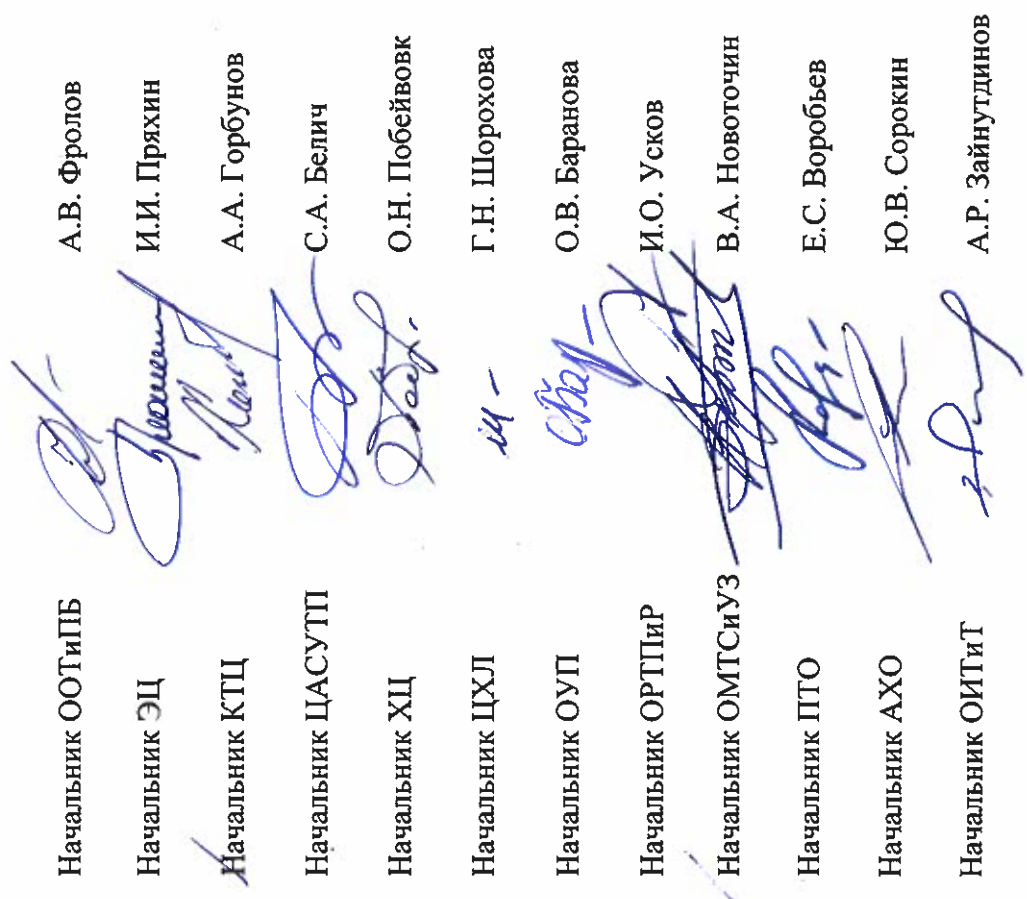 Начальник ООТиПБ А.В. Фролов
Начальник ЭЦ И.И. Пряхин
Начальник КТЦ А.А. Горбунов
Начальник ЦАСУТП С.А. Белич
Начальник ХЦ О.Н. Побейвовк
Начальник ЦХЛ Г.Н. Шорохова
Начальник ОУП О.В. Баранова
Начальник ОРТПиР И.О. Усков
Начальник ОМТСиУЗ В.А. Новоточин
Начальник ПТО Е.С. Воробьев
Начальник АХО Ю.В. Сорокин
Начальник ОИТиТ А.Р. Зайнутдинов